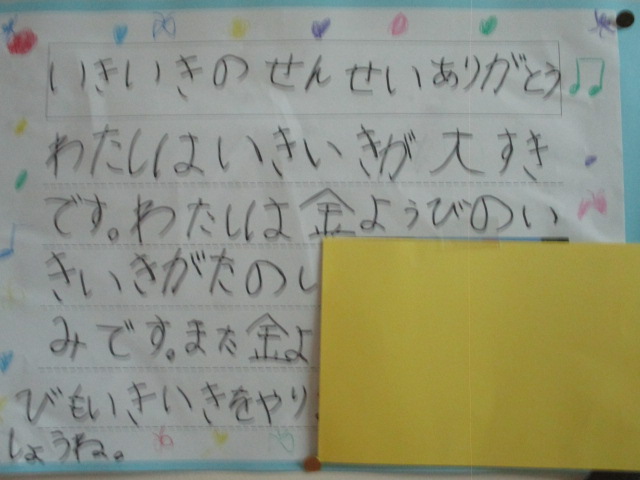 いきいきの せんせいありがとう
わたしはいきいきが大すき
です。わたしは金ようびのい
きいきがたのし
みです。また金よ
びもいきいきをやり
しょうね。